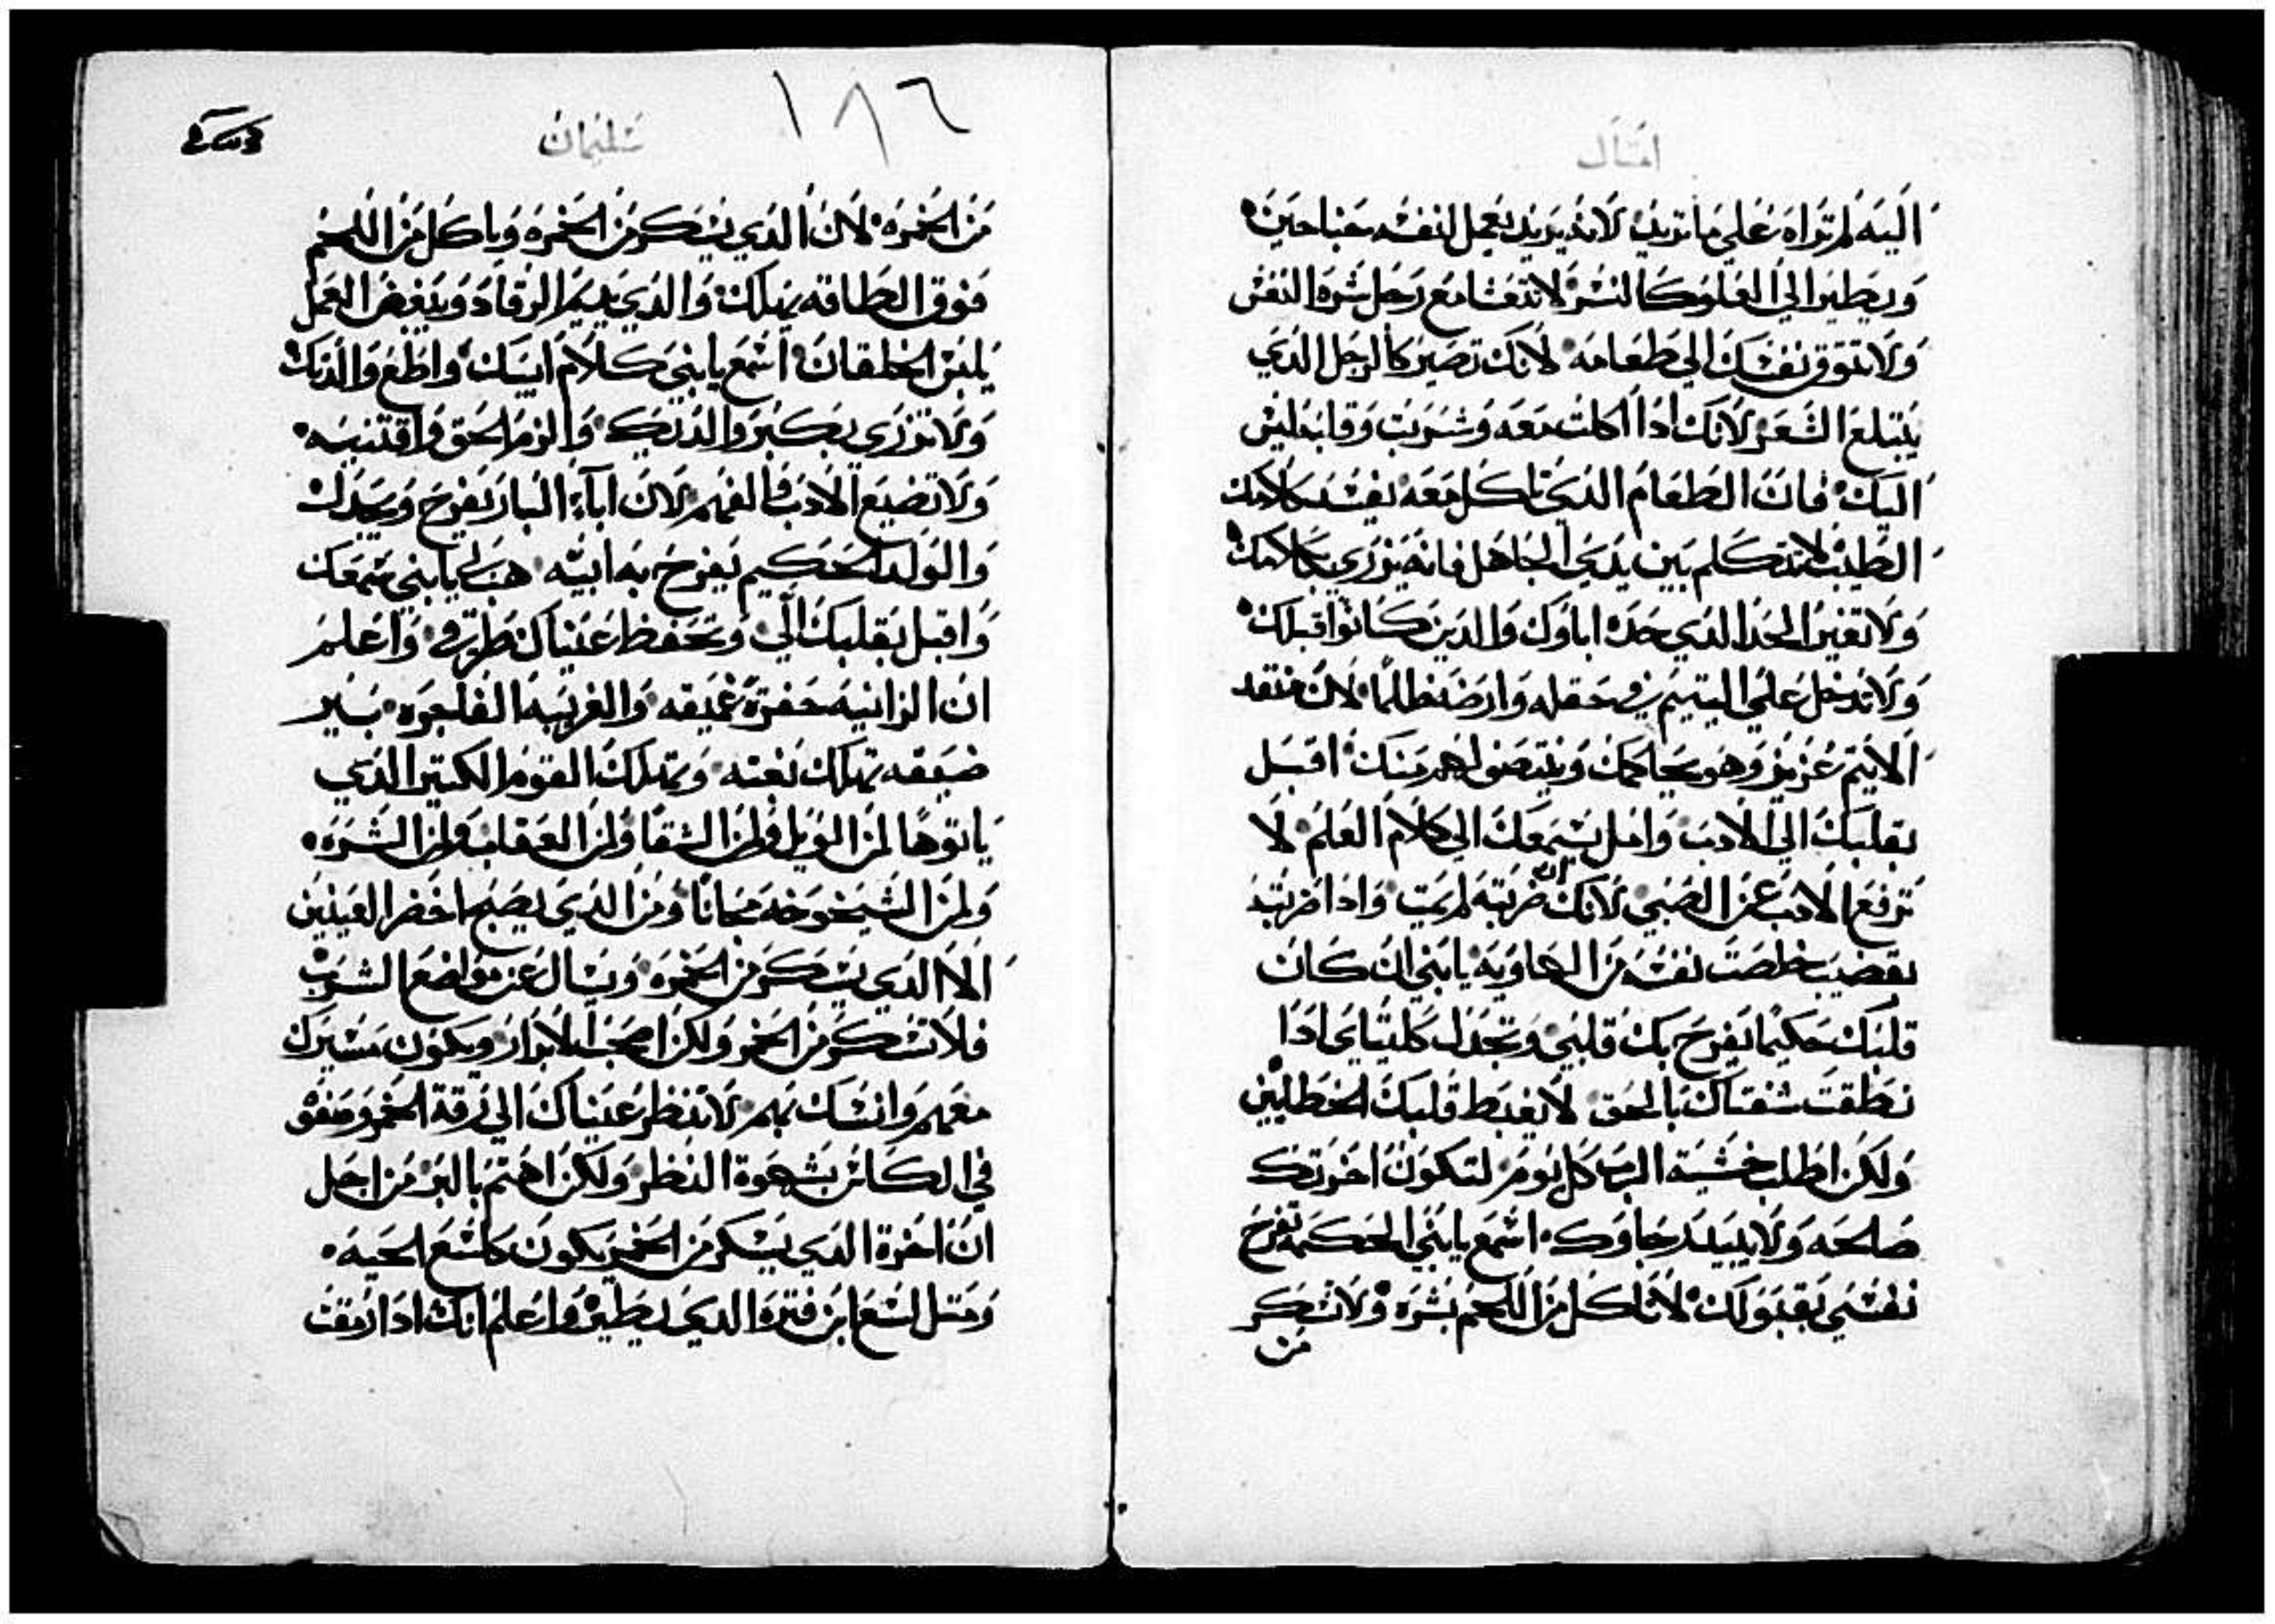 امثال
اليه لم تراه علي ما تريد لانه يريد يعمل لنفسه جناحين
ويطير الي العلو كالنسر لا تتعشا مع رجل شره النفس
ولا تتوق نفسك الي طعامه لانك تصير كالرجل الذي
يبتلع الشعر لانك ادا اكلت معه وشربت وقلبه ليس
اليك فان الطعام الذي تاكل معه يفسد كلامك
الطيب لا تتكلم بين يدي الجاهل فانه يزري بكلامك
ولا تغير الحد الذي حده اباوك والدين كانوا قبلك
ولا تدخل علي اليتيم في حقله وارضه ظالما لان منقد
الايتم عزيز وهو يحاكمك وينتصف لهم منك اقبل
بقلبك الي الادب وامل بسمعك الي كلام العلم لا
ترفع الادب عن الصبي لانك ان ضربته لم يمت وادا ضربته
بقضيب خلصت نفسه من الهاويه يابني ان كان
قلبك حكيما يفرح بك قلبي وتجدل كليتاي ادا
نطقت شفتاك بالحق لا يغبط قلبك الخطايين
ولكن اطلب خشية الرب كل يوم لتكون اخرتك
صالحه ولا يبيد رجاوك اسمع يابني الحكمه تفرح
نفسي بقبولك لا تاكل من اللحم بشره ولا تسكر
من
١٨٦
سليمان
من الخمره لان الذي يسكر من الخمره وياكل من اللحم
فوق الطاقه يهلك والذي يديم الرقاد ويبغض العمل
يلبس الخلقان اسمع يابني كلام ابيك واطع والدك
ولا تزري بكبر والدتك والزم الحق واقتنيه
ولا تضيع الادب والفهم لان اباء البار يفرح ويجدل
والولد الحكيم يفرح به ابيه هب لي يابني سمعك
واقبل بقلبك الي وتحفظ عيناك طرقي واعلم
ان الزانيه حفرة عميقه والغريبه الفاجره بير
ضيقه تهلك بغته وتهلك القوم الكتير الذي
ياتوها لمن الويل ولمن الشقا ولمن العقاب ولمن الشره
ولمن الشيخوخه مجانا ومن الذي يصبح اخضر العينين
الا الذي يسكر من الخمره ويسال عن مواضع الشرب
فلا تسكر من الخمر ولكن اصحب الابرار ويكون مسيرك
معهم وانسك بهم لا تنظر عيناك الي زرقة الخمر وصفو
في الكاس بشهوة النظر ولكن اهتم بالبر من اجل
ان اخرة الذي يسكر من الخمر يكون كلسع الحيه
ومتل لسع ابن فترة الذي يطير واعلم انك ادا رمقت